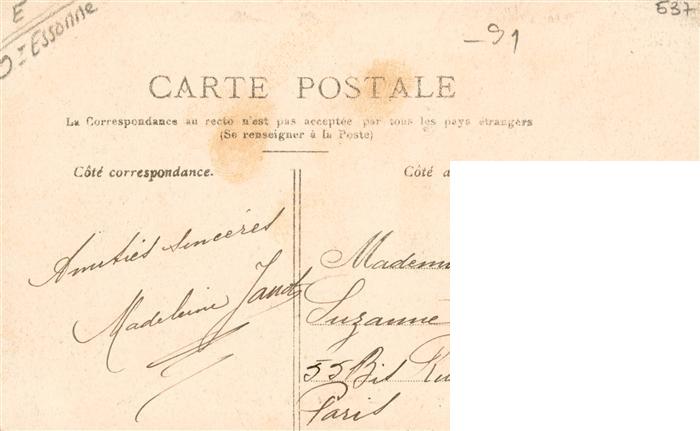 E
Essonne
-91
537
CARTE POSTALE
La Correspondance au recto n'est pas acceptée par tous les pays étrangers
(Se renseigner à la Poste)
Côté correspondance.
Côté a
Amitiés sincères
Madeleine
Madem
Suzanne
55 Bis Ru
Paris